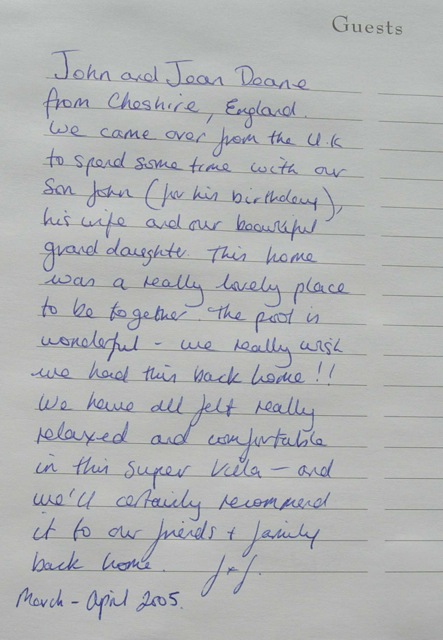 Guests
John and Joan Doane
from Cheshire, England.
We came over from the U.K
to spend some time with our
Son John (for his birthday),
his wife and our beautiful
grand daughter. This home
was a really lovely place
to be together. The pool is
wonderful - we really wish
we had this back home!!
We have all felt really
relaxed and comfortable
in this super villa - and
we'll certainly recommend
it to our friends + family
back home. J + J.
March - April 2005.